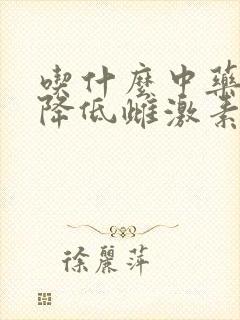 喫什麼中藥
降低雌激素
徐麗萍